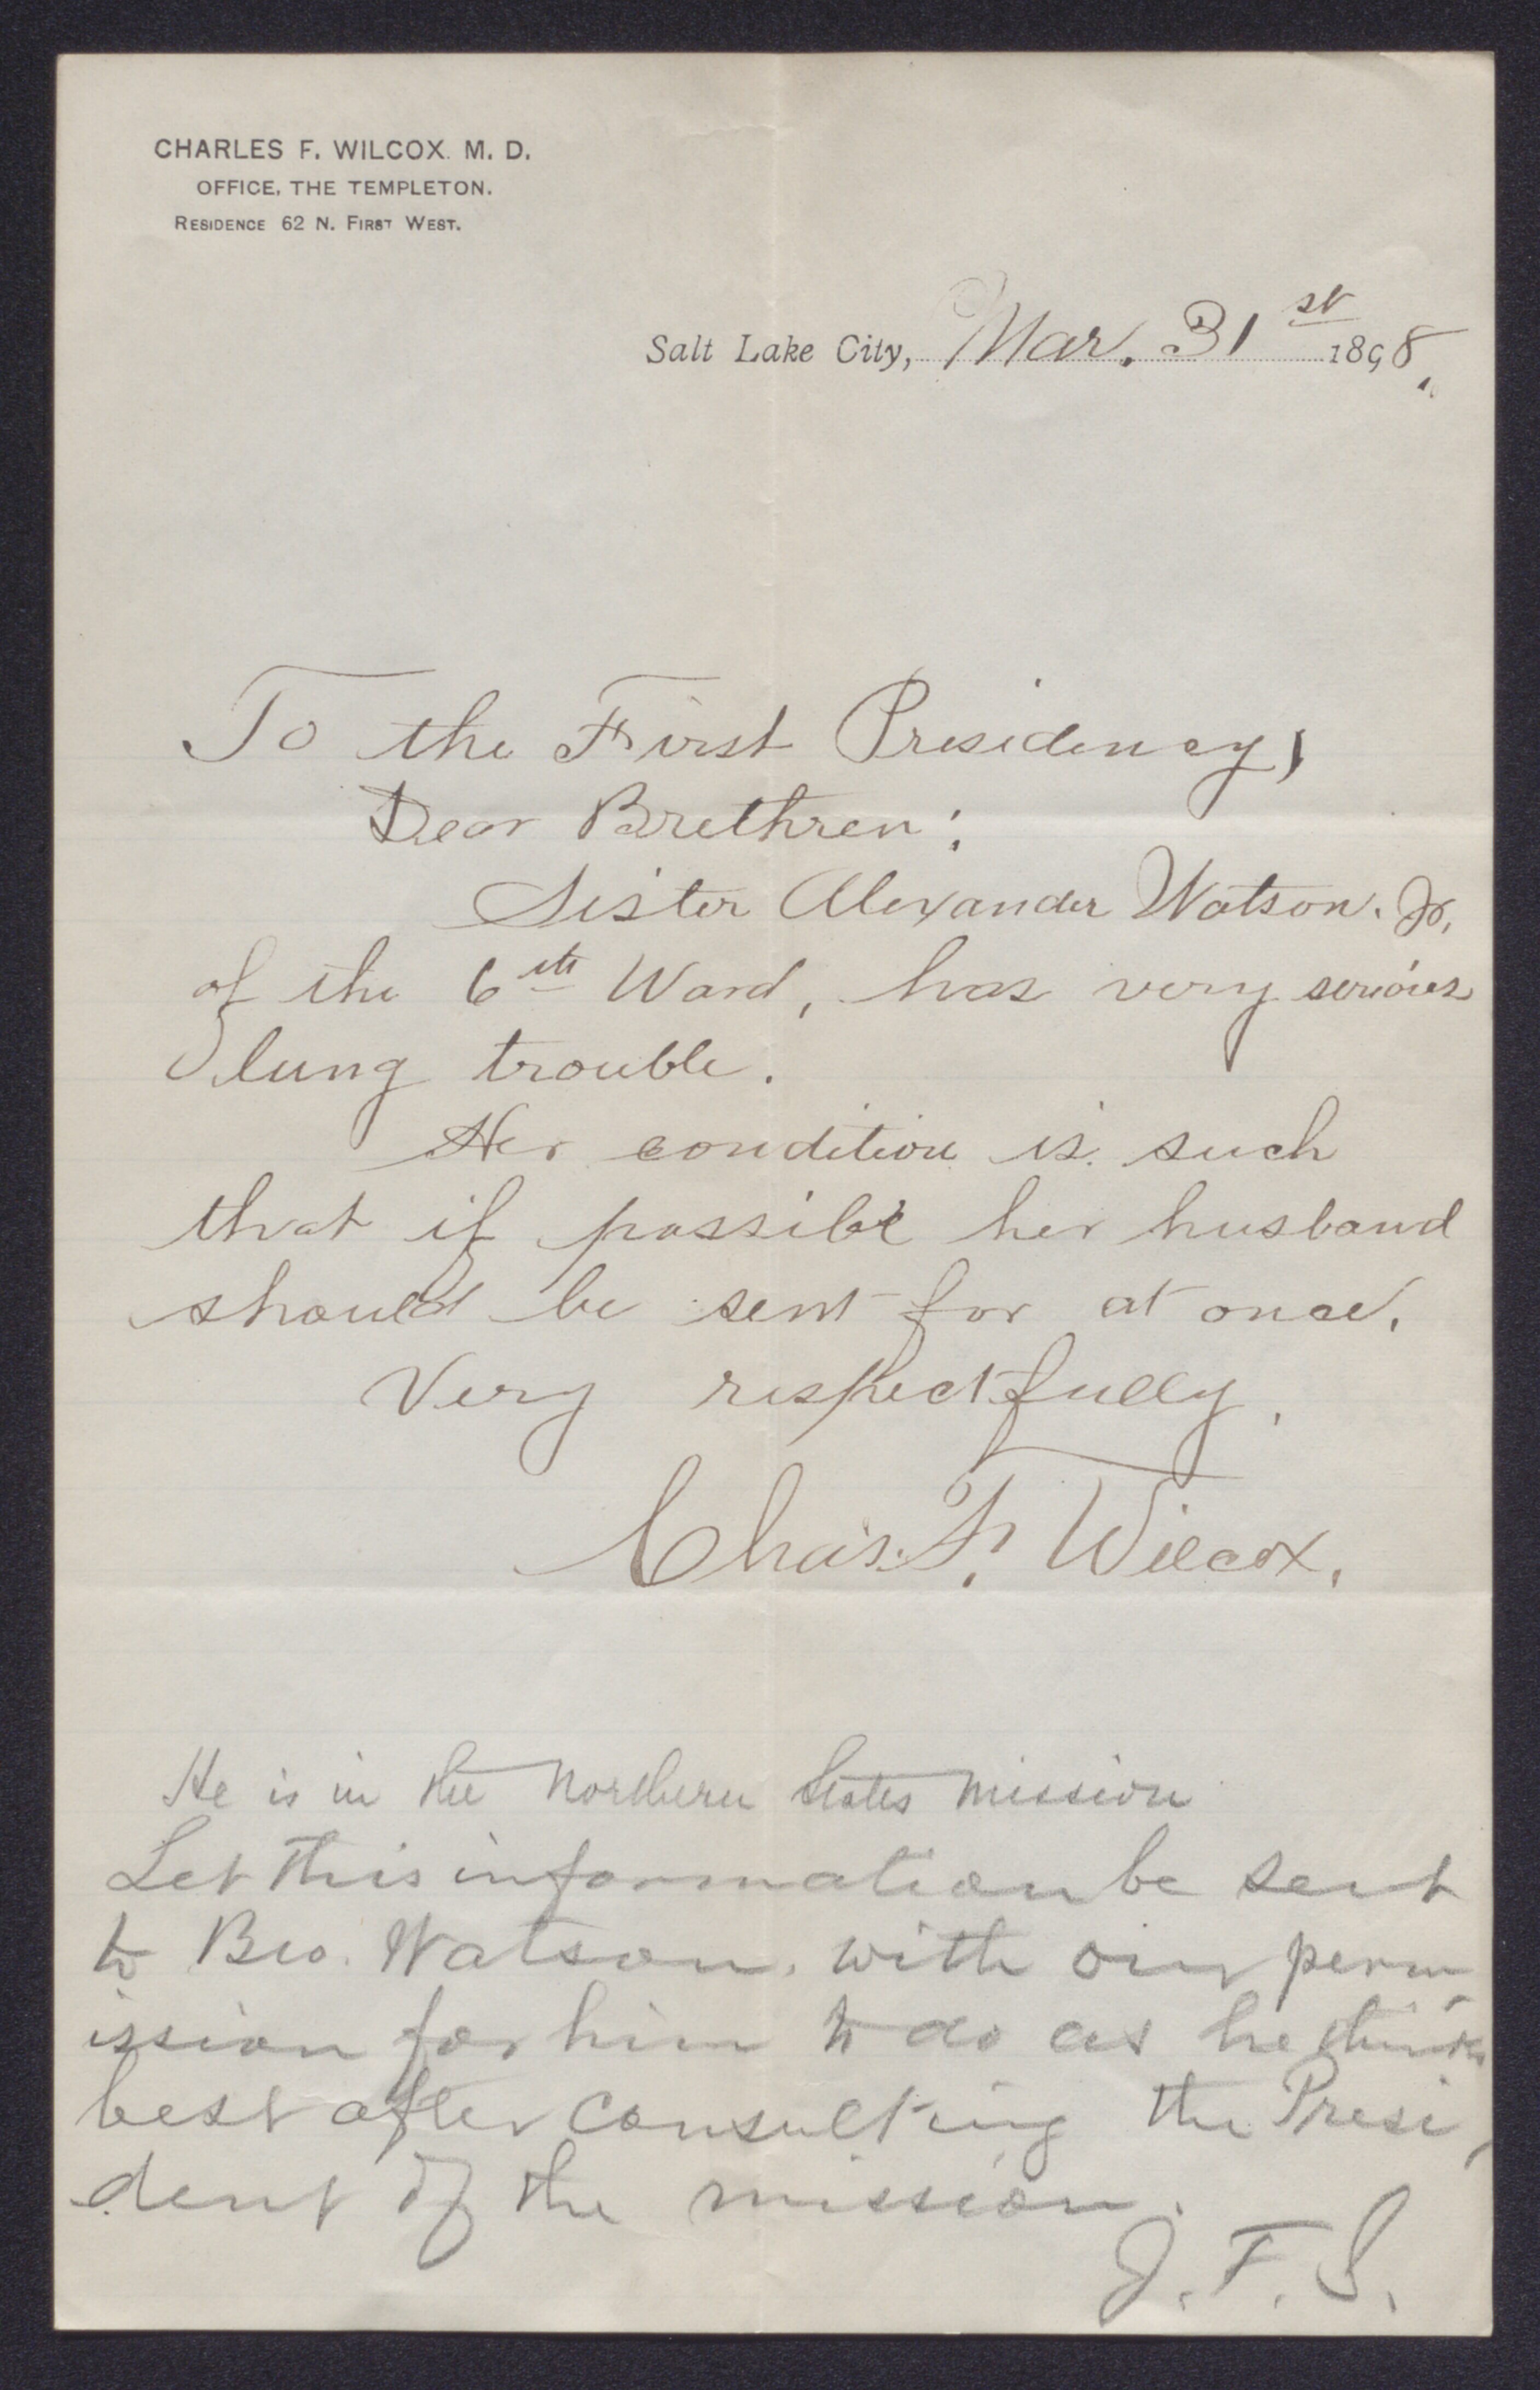 CHARLES F. WILCOX. M. D.
OFFICE, THE TEMPLETON.
RESIDENCE 62 N. FIRST WEST.
Salt Lake City, Mar. 31st 1898.
To the First Presidency,
Dear Brethren:
Sister Alexander Watson. Jr.
of the 6th Ward, has very serious
lung trouble.
Her condition is such
that if possible her husband
should be sent for at once.
Very respectfully,
Chas. F. Wilcox.
He is in the Northern States Mission
Let this information be sent
to Bro. Watson, with our perm-
ission for him to do as he thinks
best after consulting the Presi-
dent of the mission.
J. F. S.